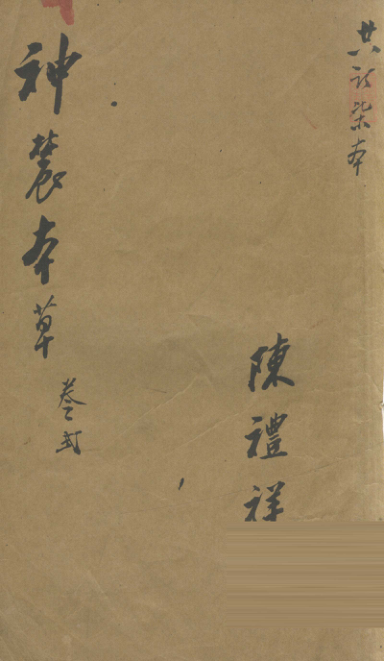 共計柒本
陳禮祥
神農本草 卷弍